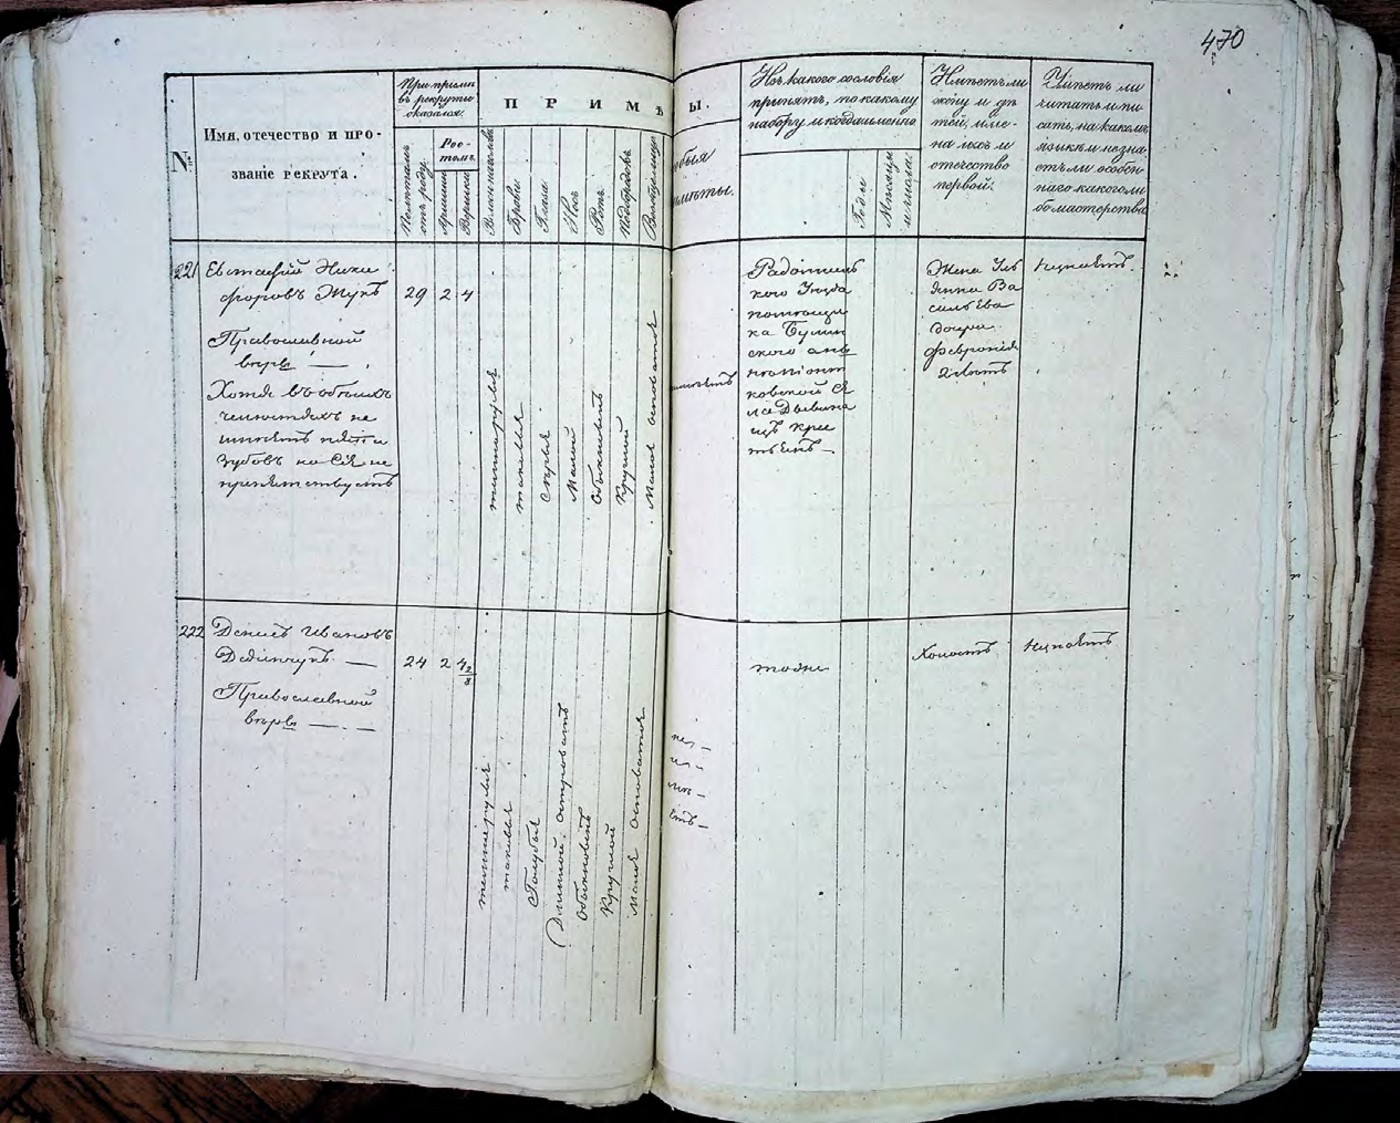 470
№
Имя, отечество и про-
званіе рекрута.
При пріемѣ
въ рекруты
оказался.
Полныхъ
отъ роду
Рос-
томъ.
Аршины
Вершки
ПРИМѢ
ТЫ.
Волосы на головѣ
Брови
Глаза
Носъ
Ротъ
Подбородокъ
Вообще лицо
Особыя
примѣты.
Изъ какого сословія
принятъ, по какому
набору и когда именно
Годы
Мѣсяцы
и числа.
Имѣетъ ли
жену и дѣ
тей, име-
на ихъ и
отечество
первой.
Умѣетъ ли
читать и пи
сать, на какомъ
языкѣ и не зна
етъ ли особен
наго какого ли
бо мастерства
221
Евстафій Ники
форовъ Жукъ
29
2
4
Православной
вѣры
Хотя въ обѣихъ
челюстяхъ не
имѣетъ пяти
зубовъ но сіе не
препятствуетъ
темнорусыя
таковыя
Сѣрыя
Малой
Обыкновенъ
Круглый
Мало осповатое
Радомысль
кого Уѣзда
помѣщи
ка Булин
ского
села Дывина
изъ кре
стьянъ
Жена Уль
яна Ва
сильева
дочь
Февронія
2 лѣтъ
Неумѣетъ.
222
Данилъ Ивановъ
24
2
4 2/8
Православной
вѣры
темнорусыя
таковыя
Голубыя
Длинной островатъ
Обыкновенъ
Круглой
Мало осповатое
тоже
Холостъ
Неумѣетъ